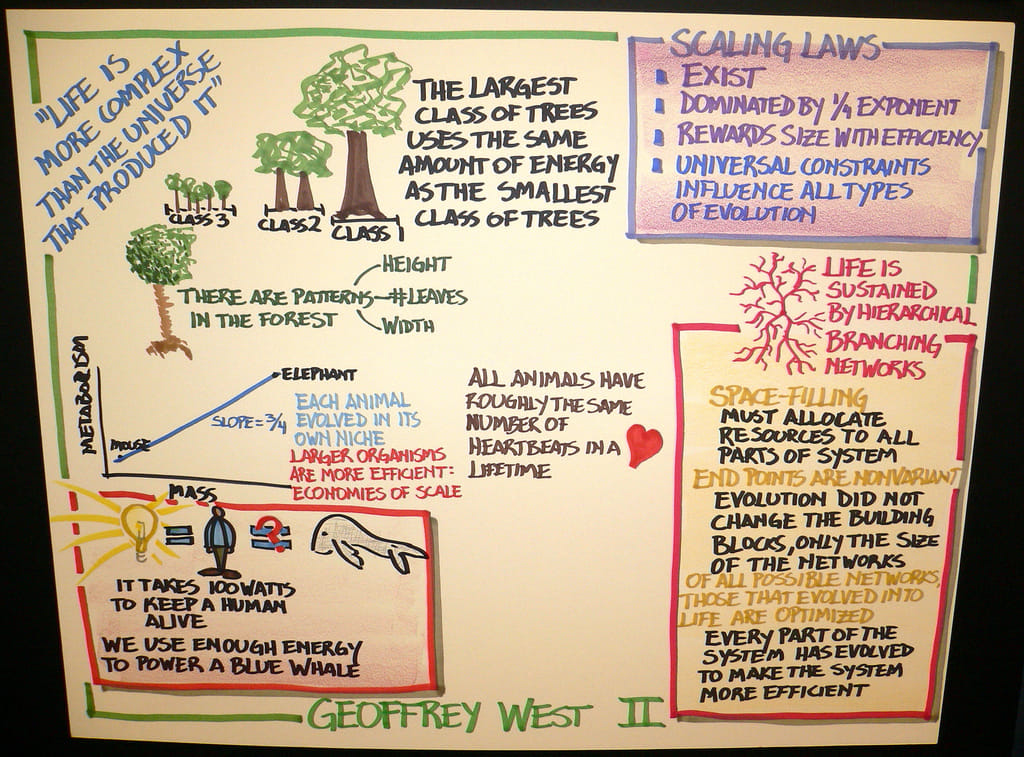 "LIFE IS
MORE COMPLEX
THAN THE UNIVERSE
THAT PRODUCED IT"
CLASS 3
CLASS 2
CLASS 1
THE LARGEST
CLASS OF TREES
USES THE SAME
AMOUNT OF ENERGY
AS THE SMALLEST
CLASS OF TREES
SCALING LAWS
EXIST
DOMINATED BY 1/4 EXPONENT
REWARDS SIZE WITH EFFICIENCY
UNIVERSAL CONSTRAINTS
INFLUENCE ALL TYPES
OF EVOLUTION
THERE ARE PATTERNS
IN THE FOREST
HEIGHT
#LEAVES
WIDTH
LIFE IS
SUSTAINED
BY HIERARCHICAL
BRANCHING
NETWORKS
METABOLISM
MOUSE
ELEPHANT
SLOPE = 3/4
MASS
EACH ANIMAL
EVOLVED IN ITS
OWN NICHE
LARGER ORGANISMS
ARE MORE EFFICIENT:
ECONOMIES OF SCALE
ALL ANIMALS HAVE
ROUGHLY THE SAME
NUMBER OF
HEARTBEATS IN A
LIFETIME
SPACE-FILLING
MUST ALLOCATE
RESOURCES TO ALL
PARTS OF SYSTEM
END POINTS ARE NONVARIANT
EVOLUTION DID NOT
CHANGE THE BUILDING
BLOCKS, ONLY THE SIZE
OF THE NETWORKS
OF ALL POSSIBLE NETWORKS,
THOSE THAT EVOLVED INTO
LIFE ARE OPTIMIZED
EVERY PART OF THE
SYSTEM HAS EVOLVED
TO MAKE THE SYSTEM
MORE EFFICIENT
= = ?
IT TAKES 100 WATTS
TO KEEP A HUMAN
ALIVE
WE USE ENOUGH ENERGY
TO POWER A BLUE WHALE
GEOFFREY WEST II